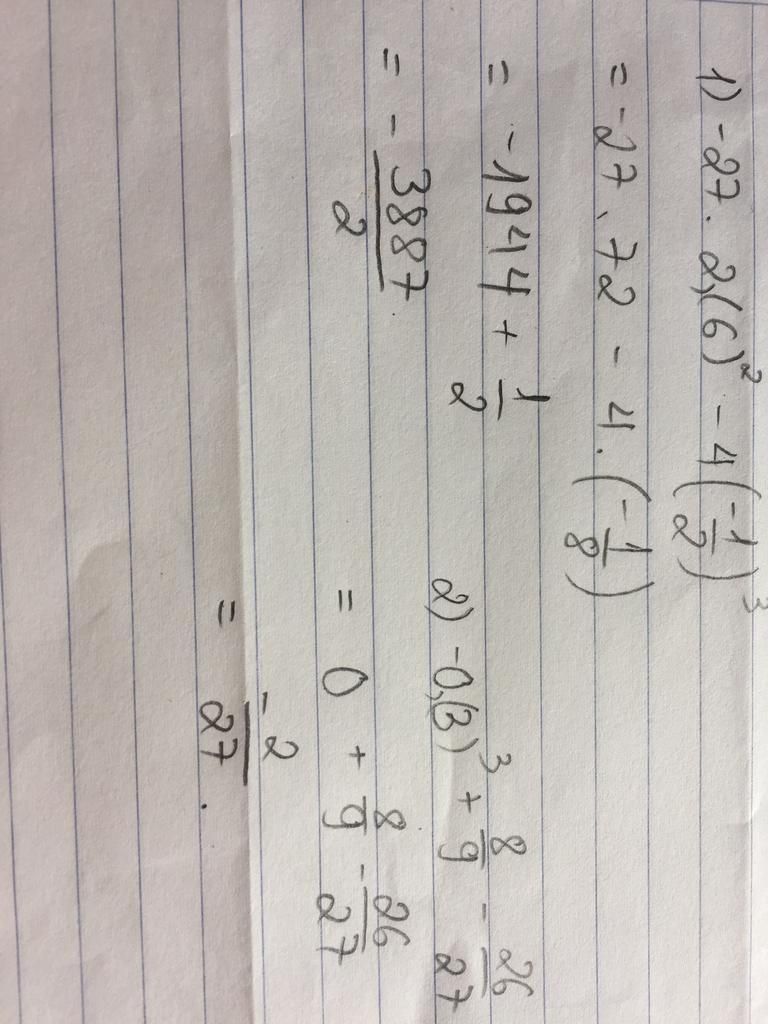 1) -27. 2,(6)² - 4(-1/2)³
= -27 . 72 - 4 . (-1/8)
= -1944 + 1/2
= - 3887/2
2) -0,(3)³ + 8/9 - 26/27
= 0 + 8/9 - 26/27
= -2/27 .